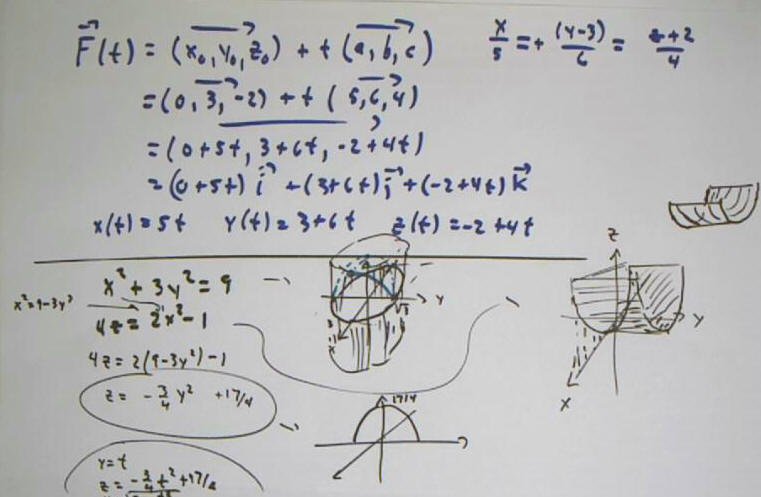 F⃗(t) = (x₀, y₀, z₀) + t (a, b, c)
x/5 = t (y-3)/6 = z+2/4
= (0, 3, -2) + t (5, 6, 4)
= (0+5t, 3+6t, -2+4t)
= (0+5t) i⃗ + (3+6t) j⃗ + (-2+4t) k⃗
x(t) = 5t y(t) = 3+6t z(t) = -2+4t
x² + 3y² = 9
x² = 9-3y²
4z = 2x² - 1
4z = 2(9-3y²) - 1
z = -3/4 y² + 17/4
y = t
z = -3/4 t² + 17/4
y
x
17/4
z
y
x